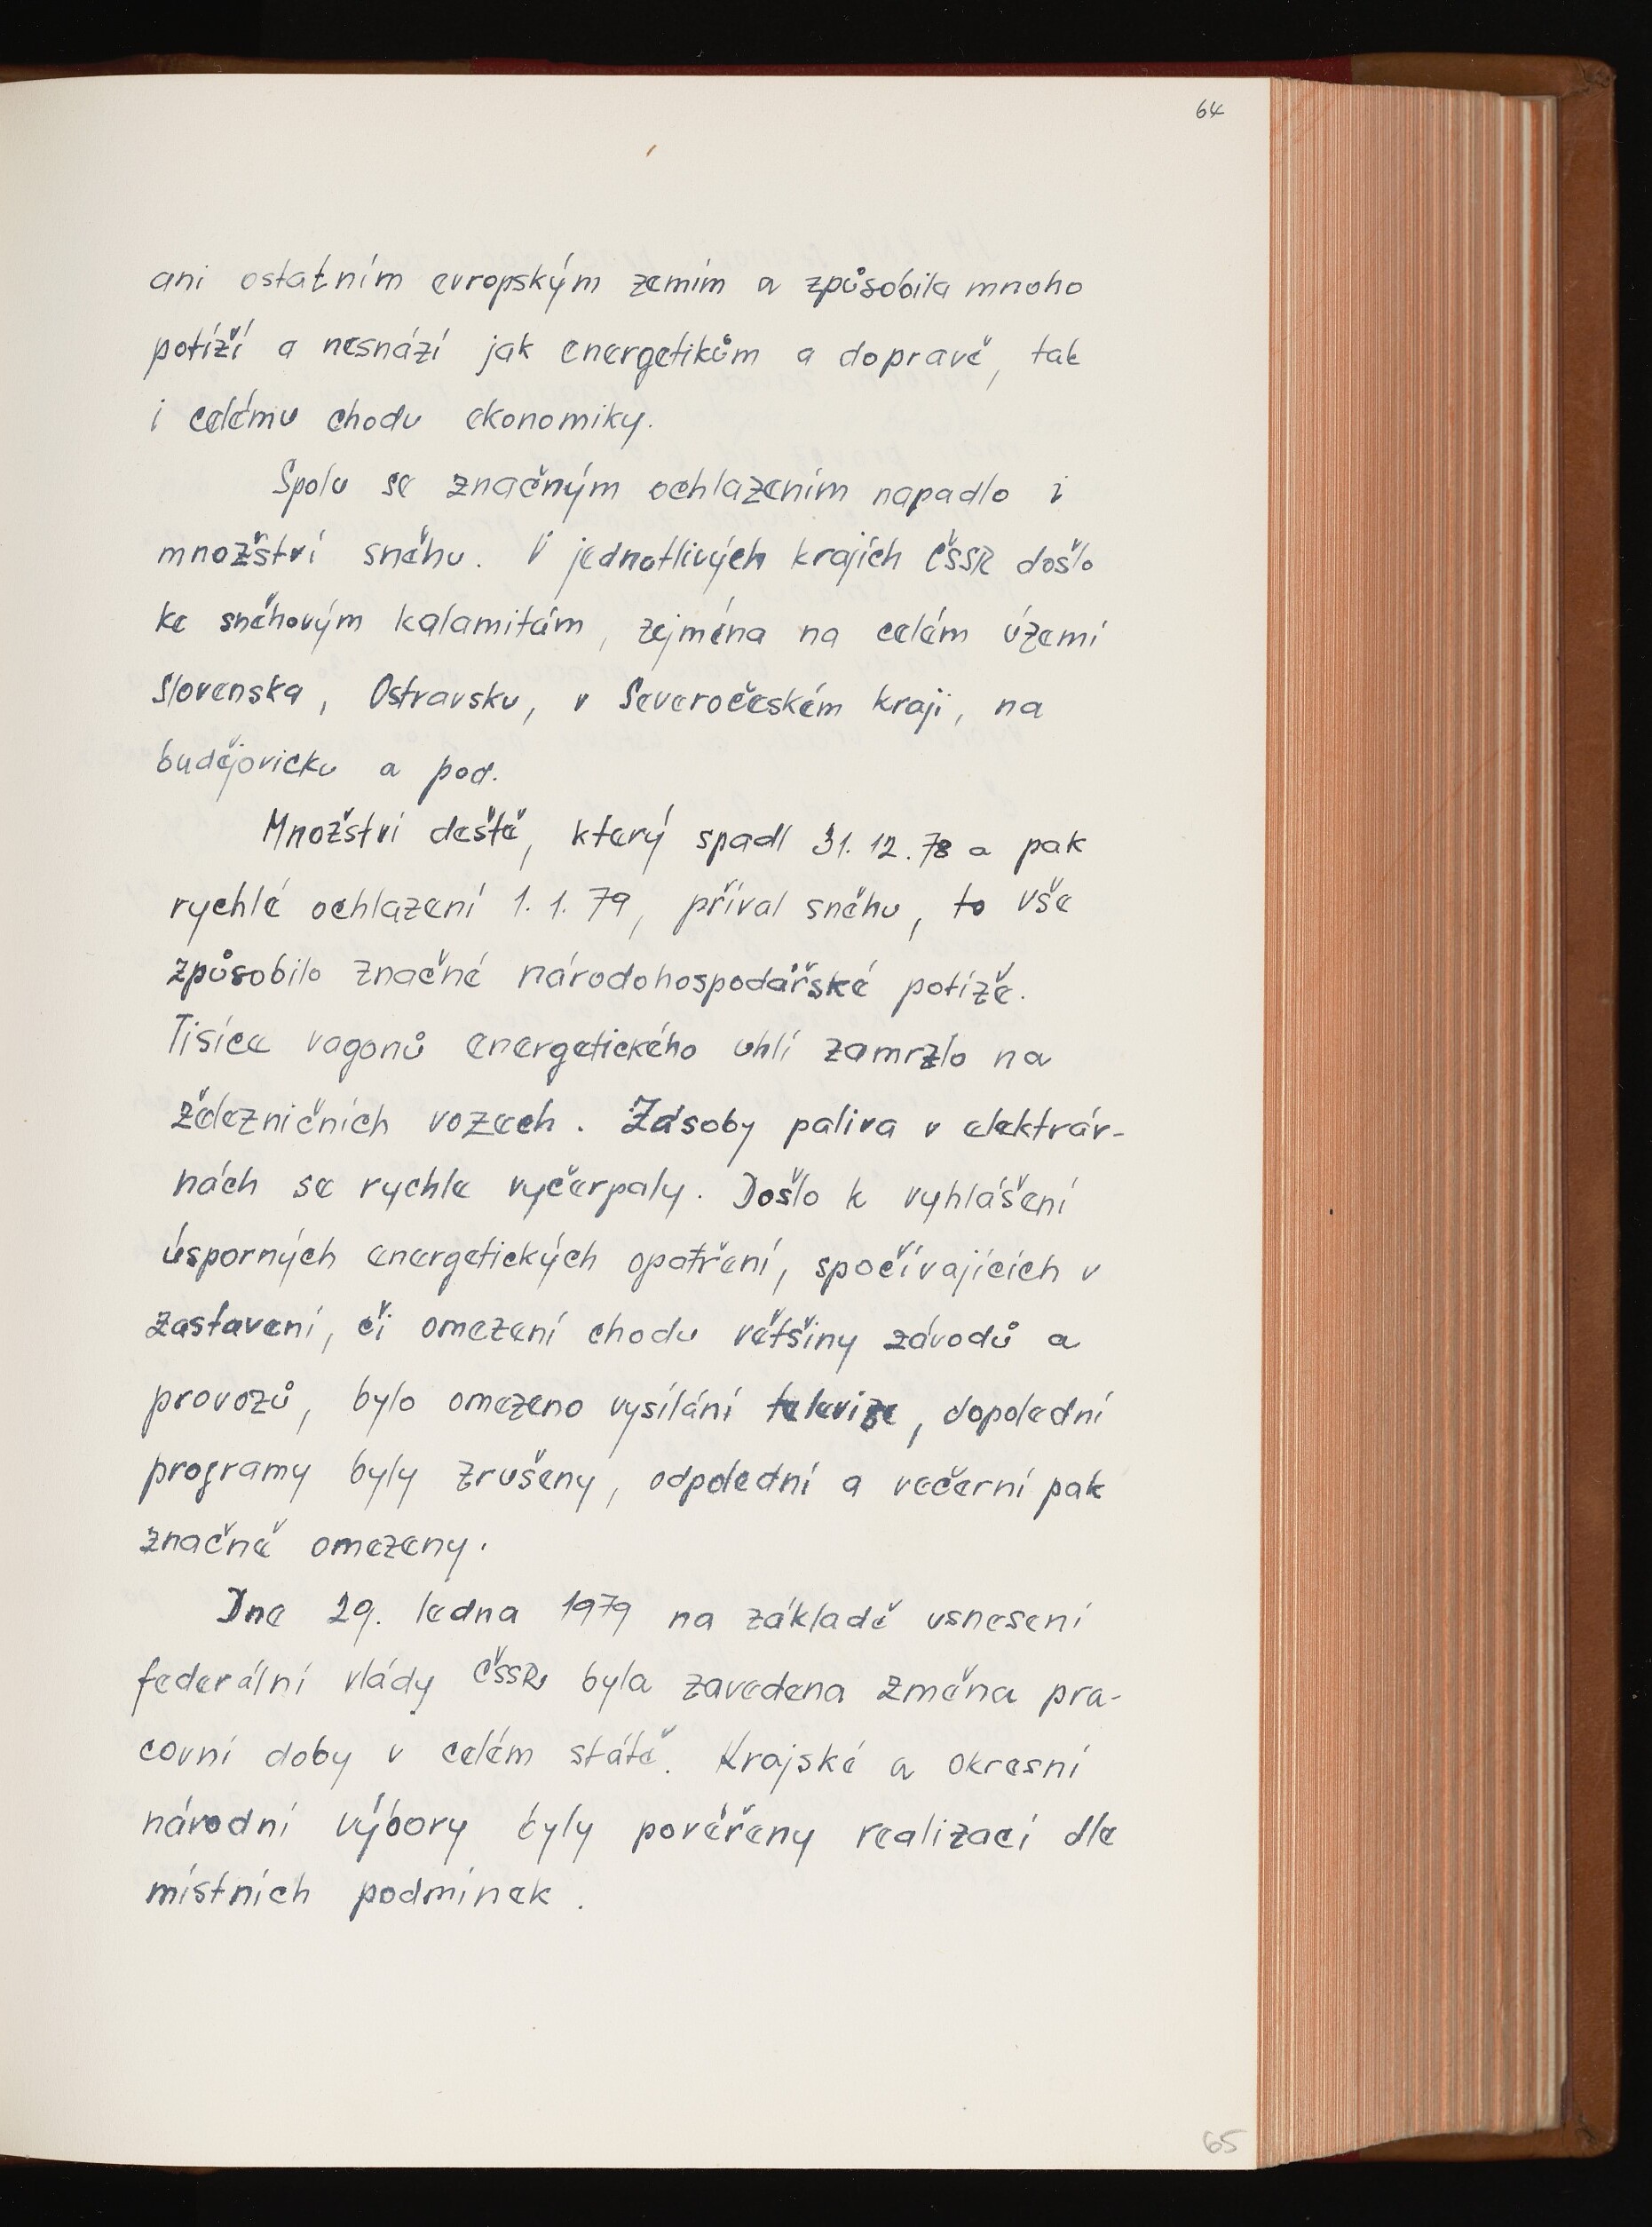 64
ani ostatním evropským zemím a způsobila mnoho
potíží a nesnází jak energetikům a dopravě, tak
i celému chodu ekonomiky.
Spolu se značným ochlazením napadlo i
množství sněhu. V jednotlivých krajích ČSSR došlo
ke sněhovým kalamitám, zejména na celém území
Slovenska, Ostravsku, v Severočeském kraji, na
budějovicku a pod.
Množství deště, který spadl 31. 12. 78 a pak
rychlé ochlazení 1. 1. 79, příval sněhu, to vše
způsobilo značné národohospodářské potíže.
Tisíce vagonů energetického uhlí zamrzlo na
želežničních vozech. Zásoby paliva v elektrár-
nách se rychle vyčerpaly. Došlo k vyhlášení
úsporných energetických opatření, spočívajících v
zastavení, či omezení chodu většiny závodů a
provozů, bylo omezeno vysílání televize, dopolední
programy byly zrušeny, odpolední a večerní pak
značně omezeny.
Dne 29. ledna 1979 na základě usnesení
federální vlády ČSSR byla zavedena změna pra-
covní doby v celém státě. Krajské a okresní
národní výbory byly pověřeny realizací dle
místních podmínek.
65